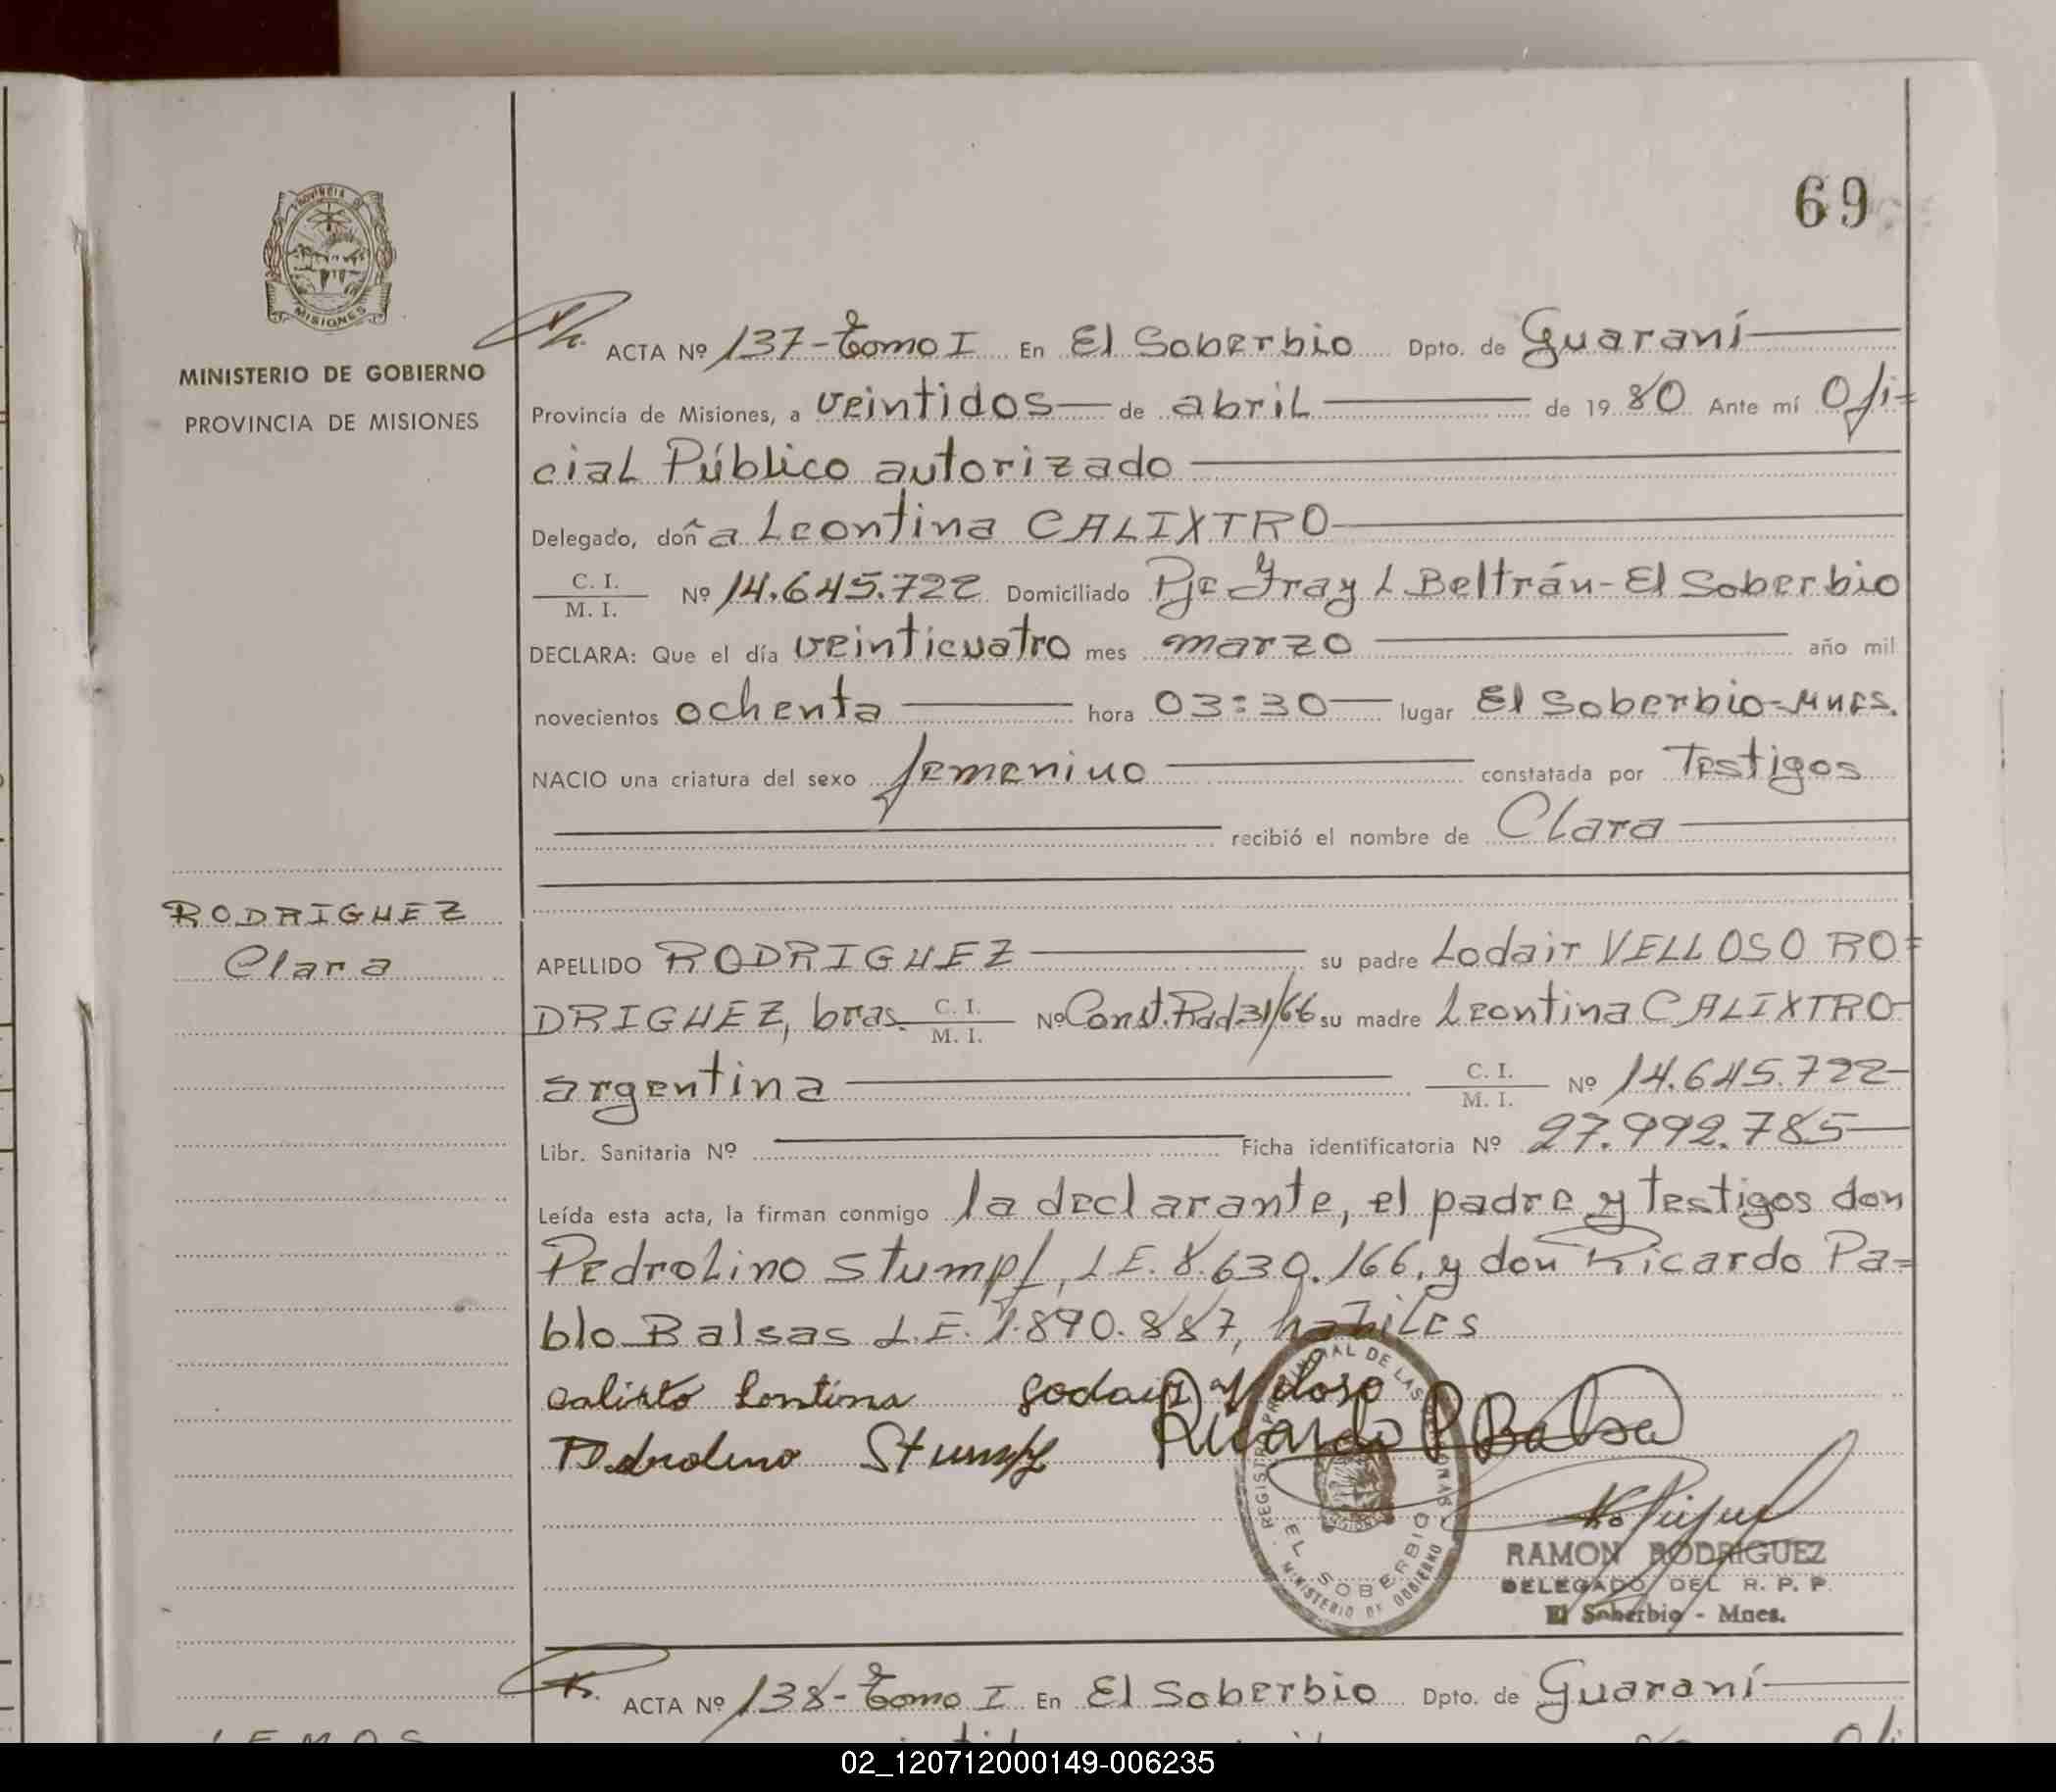 69
PROVINCIA DE
MISIONES
MINISTERIO DE GOBIERNO
PROVINCIA DE MISIONES
ACTA Nº 137-Tomo I En El Soberbio Dpto. de Guaraní
Provincia de Misiones, a veintidos de abril de 1980 Ante mí Ofi=
cial Público autorizado
Delegado, doña Leontina CALIXTRO
C. I.
M. I. Nº 14.645.722 Domiciliado Pje Fray L Beltrán-El Soberbio
DECLARA: Que el día veinticuatro mes marzo año mil
novecientos ochenta hora 03:30 lugar El Soberbio-Mnes.
NACIO una criatura del sexo femenino constatada por Testigos
recibió el nombre de Clara
RODRIGHEZ
Clara
APELLIDO RODRIGHEZ su padre Lodair VELLOSO RO=
DRIGHEZ, bras. C. I.
M. I. Nº Const.Rad31/66 su madre Leontina CALIXTRO
argentina C. I.
M. I. Nº 14.645.722
Libr. Sanitaria Nº Ficha identificatoria Nº 27.992.785
Leída esta acta, la firman conmigo la declarante, el padre y testigos don
Pedrolino Stumpf, L.E. 8.630.166, y don Ricardo Pa=
blo Balsas L.E. 7.890.887, habiles
Calixto Lontina
Pedrolino Stumpf Ricardo P Balsa
REGISTRO PROVINCIAL DE LAS PERSONAS
EL SOBERBIO
MINISTERIO DE GOBIERNO
RAMON RODRIGUEZ
DELEGADO DEL R. P. P.
El Soberbio - Mnes.
ACTA Nº 138-Tomo I En El Soberbio Dpto. de Guaraní
LEMOS
02_120712000149-006235